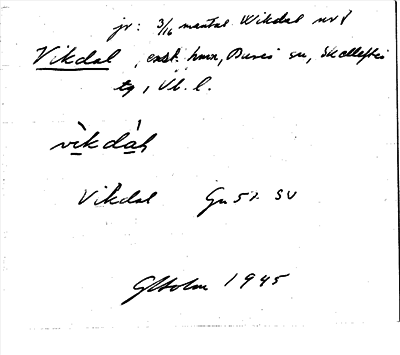 jr: 3/16 mantal Wikdal nr 1
Vikdal, enst. hmn, Bureå sn, Skellefteå
tg, Vb. l.
vìkdàɫ
Vikdal Gn 52 SV
GHolm 1945